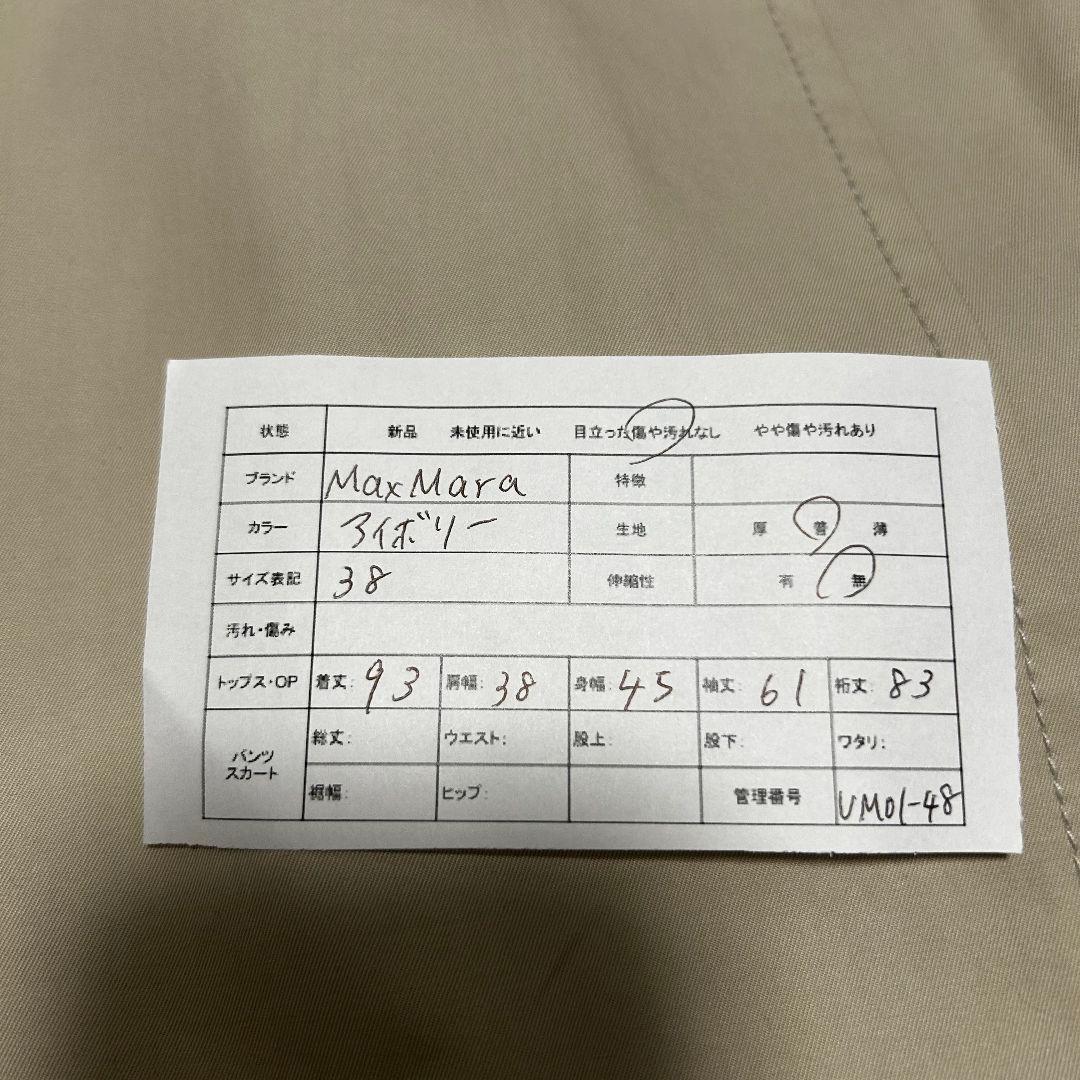 状態 新品 未使用に近い 目立った傷や汚れなし やや傷や汚れあり
ブランド MaxMara 特徴
カラー アイボリー 生地 厚 普 薄
サイズ表記 38 伸縮性 有 無
汚れ・傷み
トップス・OP 着丈: 93 肩幅: 38 身幅: 45 袖丈: 61 裄丈: 83
パンツ スカート 総丈: ウエスト: 股上: 股下: ワタリ:
裾幅: ヒップ: 管理番号 UM01-48